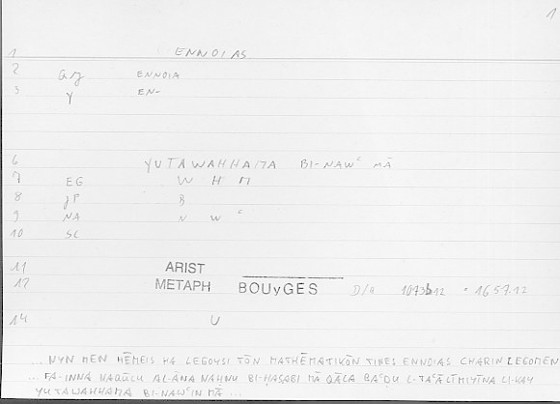 1
1 ENNOIAS
2 ag ENNOIA
3 y EN-
6 YUTAWAHHAMA BI-NAWᶜ MĀ
7 EG W H M
8 gP B
9 NA N W ᶜ
10 SC
11 ARIST
12 METAPH BOUyGES D/a 1073b12 = 1657.12
14 U
... NYN MEN HĒMEIS HA LEGOYSI TŌN MATHĒMATIKŌN TINES ENNOIAS CHARIN LEGOMEN
... FA-INNA NAQŪLU AL-ĀNA NAHNU BI-HASABI MĀ QĀLA BAᶜDU L-TAᶜĀLĪMIYĪNA LI-KAY
YUTAWAHHAMA BI-NAWᶜIN MĀ ...